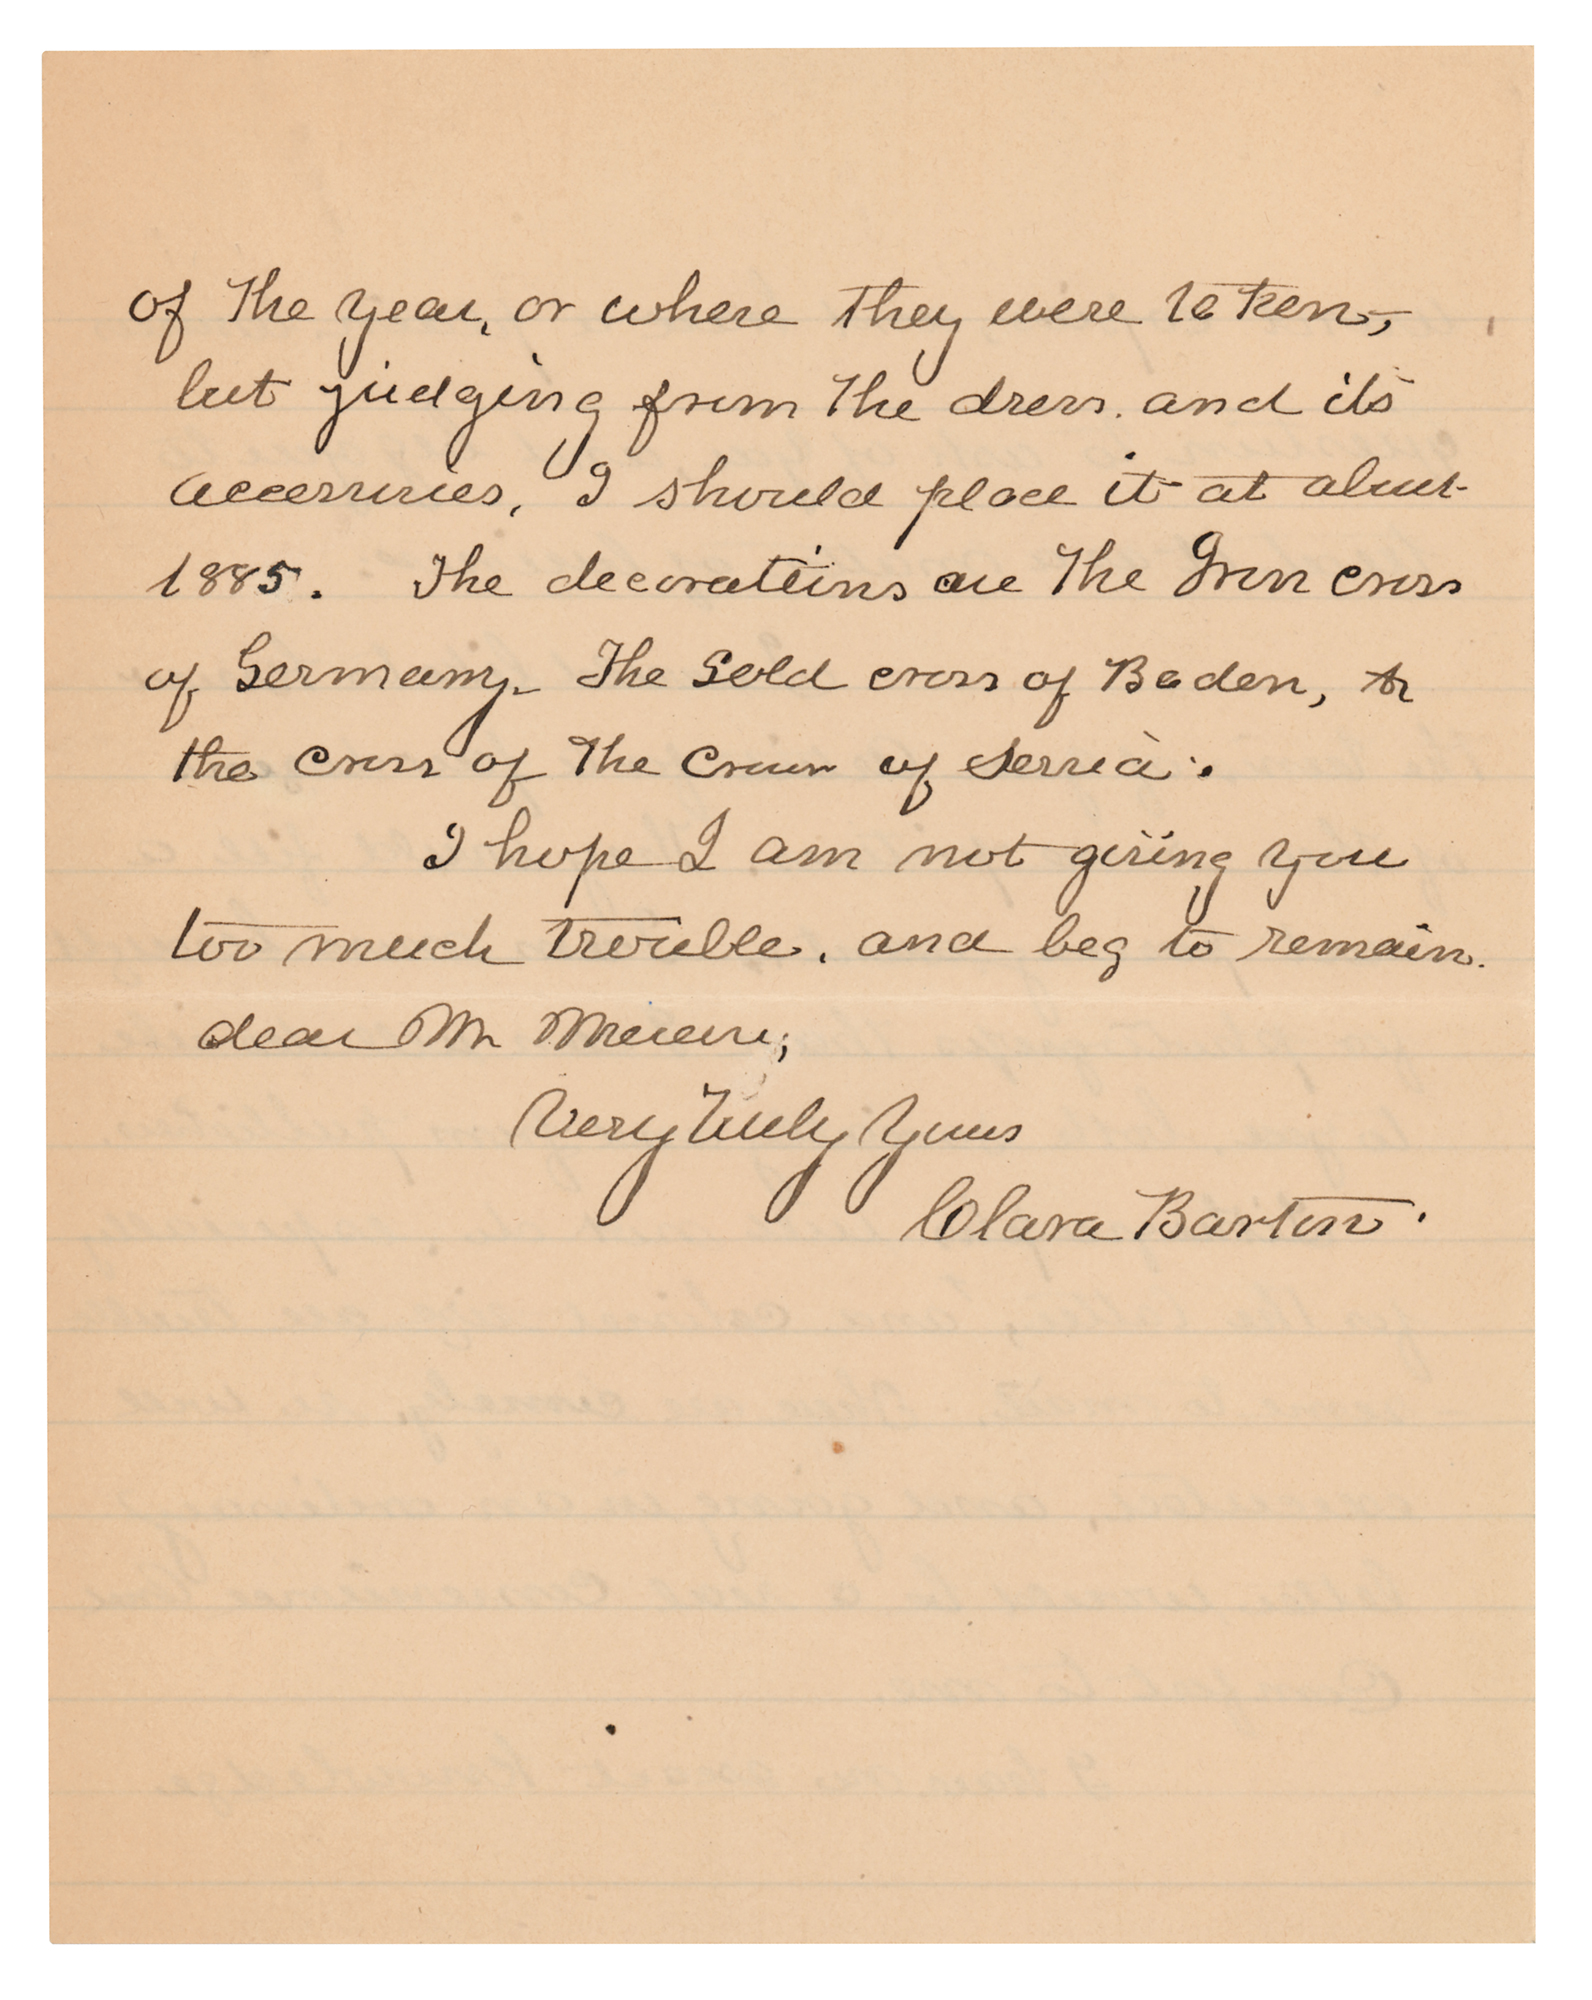 of the year, or where they were taken,
but judging from the dress. and its
accessories, I should place it at about
1885. The decorations are the Iron cross
of Germany. The Gold cross of Baden, &
the cross of the Crown of Servia.
I hope I am not giving you
too much trouble. and beg to remain.
dear Mr
Very truly yours
Clara Barton.